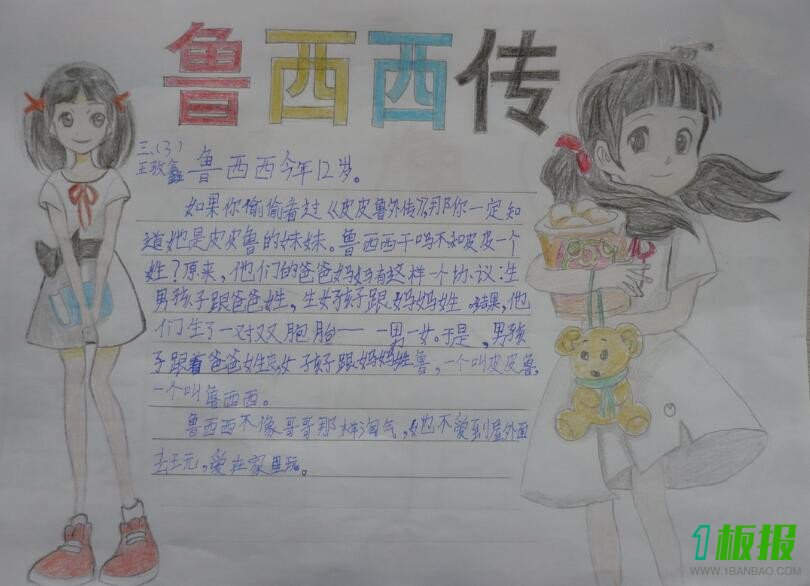 鲁西西传
三、(3)
王敬鑫
鲁西西今年12岁。
如果你偷偷看过《皮皮鲁外传》,那你一定知
道她是皮皮鲁的妹妹。鲁西西干吗不和皮皮一个
姓?原来,他们的爸爸妈妈有这样一个协议:生
男孩子跟爸爸姓,生女孩子跟妈妈姓。结果,他
们生了一对双胞胎——一男一女。于是,男孩
子跟着爸爸姓皮,女孩子跟妈妈姓鲁,一个叫皮皮鲁,
一个叫鲁西西。
鲁西西不像哥哥那样淘气,她也不爱到屋外面
去玩,爱在家里玩。
1板报
WWW.1BANBAO.COM